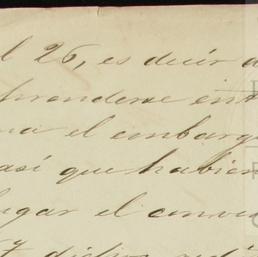 l 26, es decir a
prenderse ent
na el embarg
así que habien
lugar el conve
7 dichos